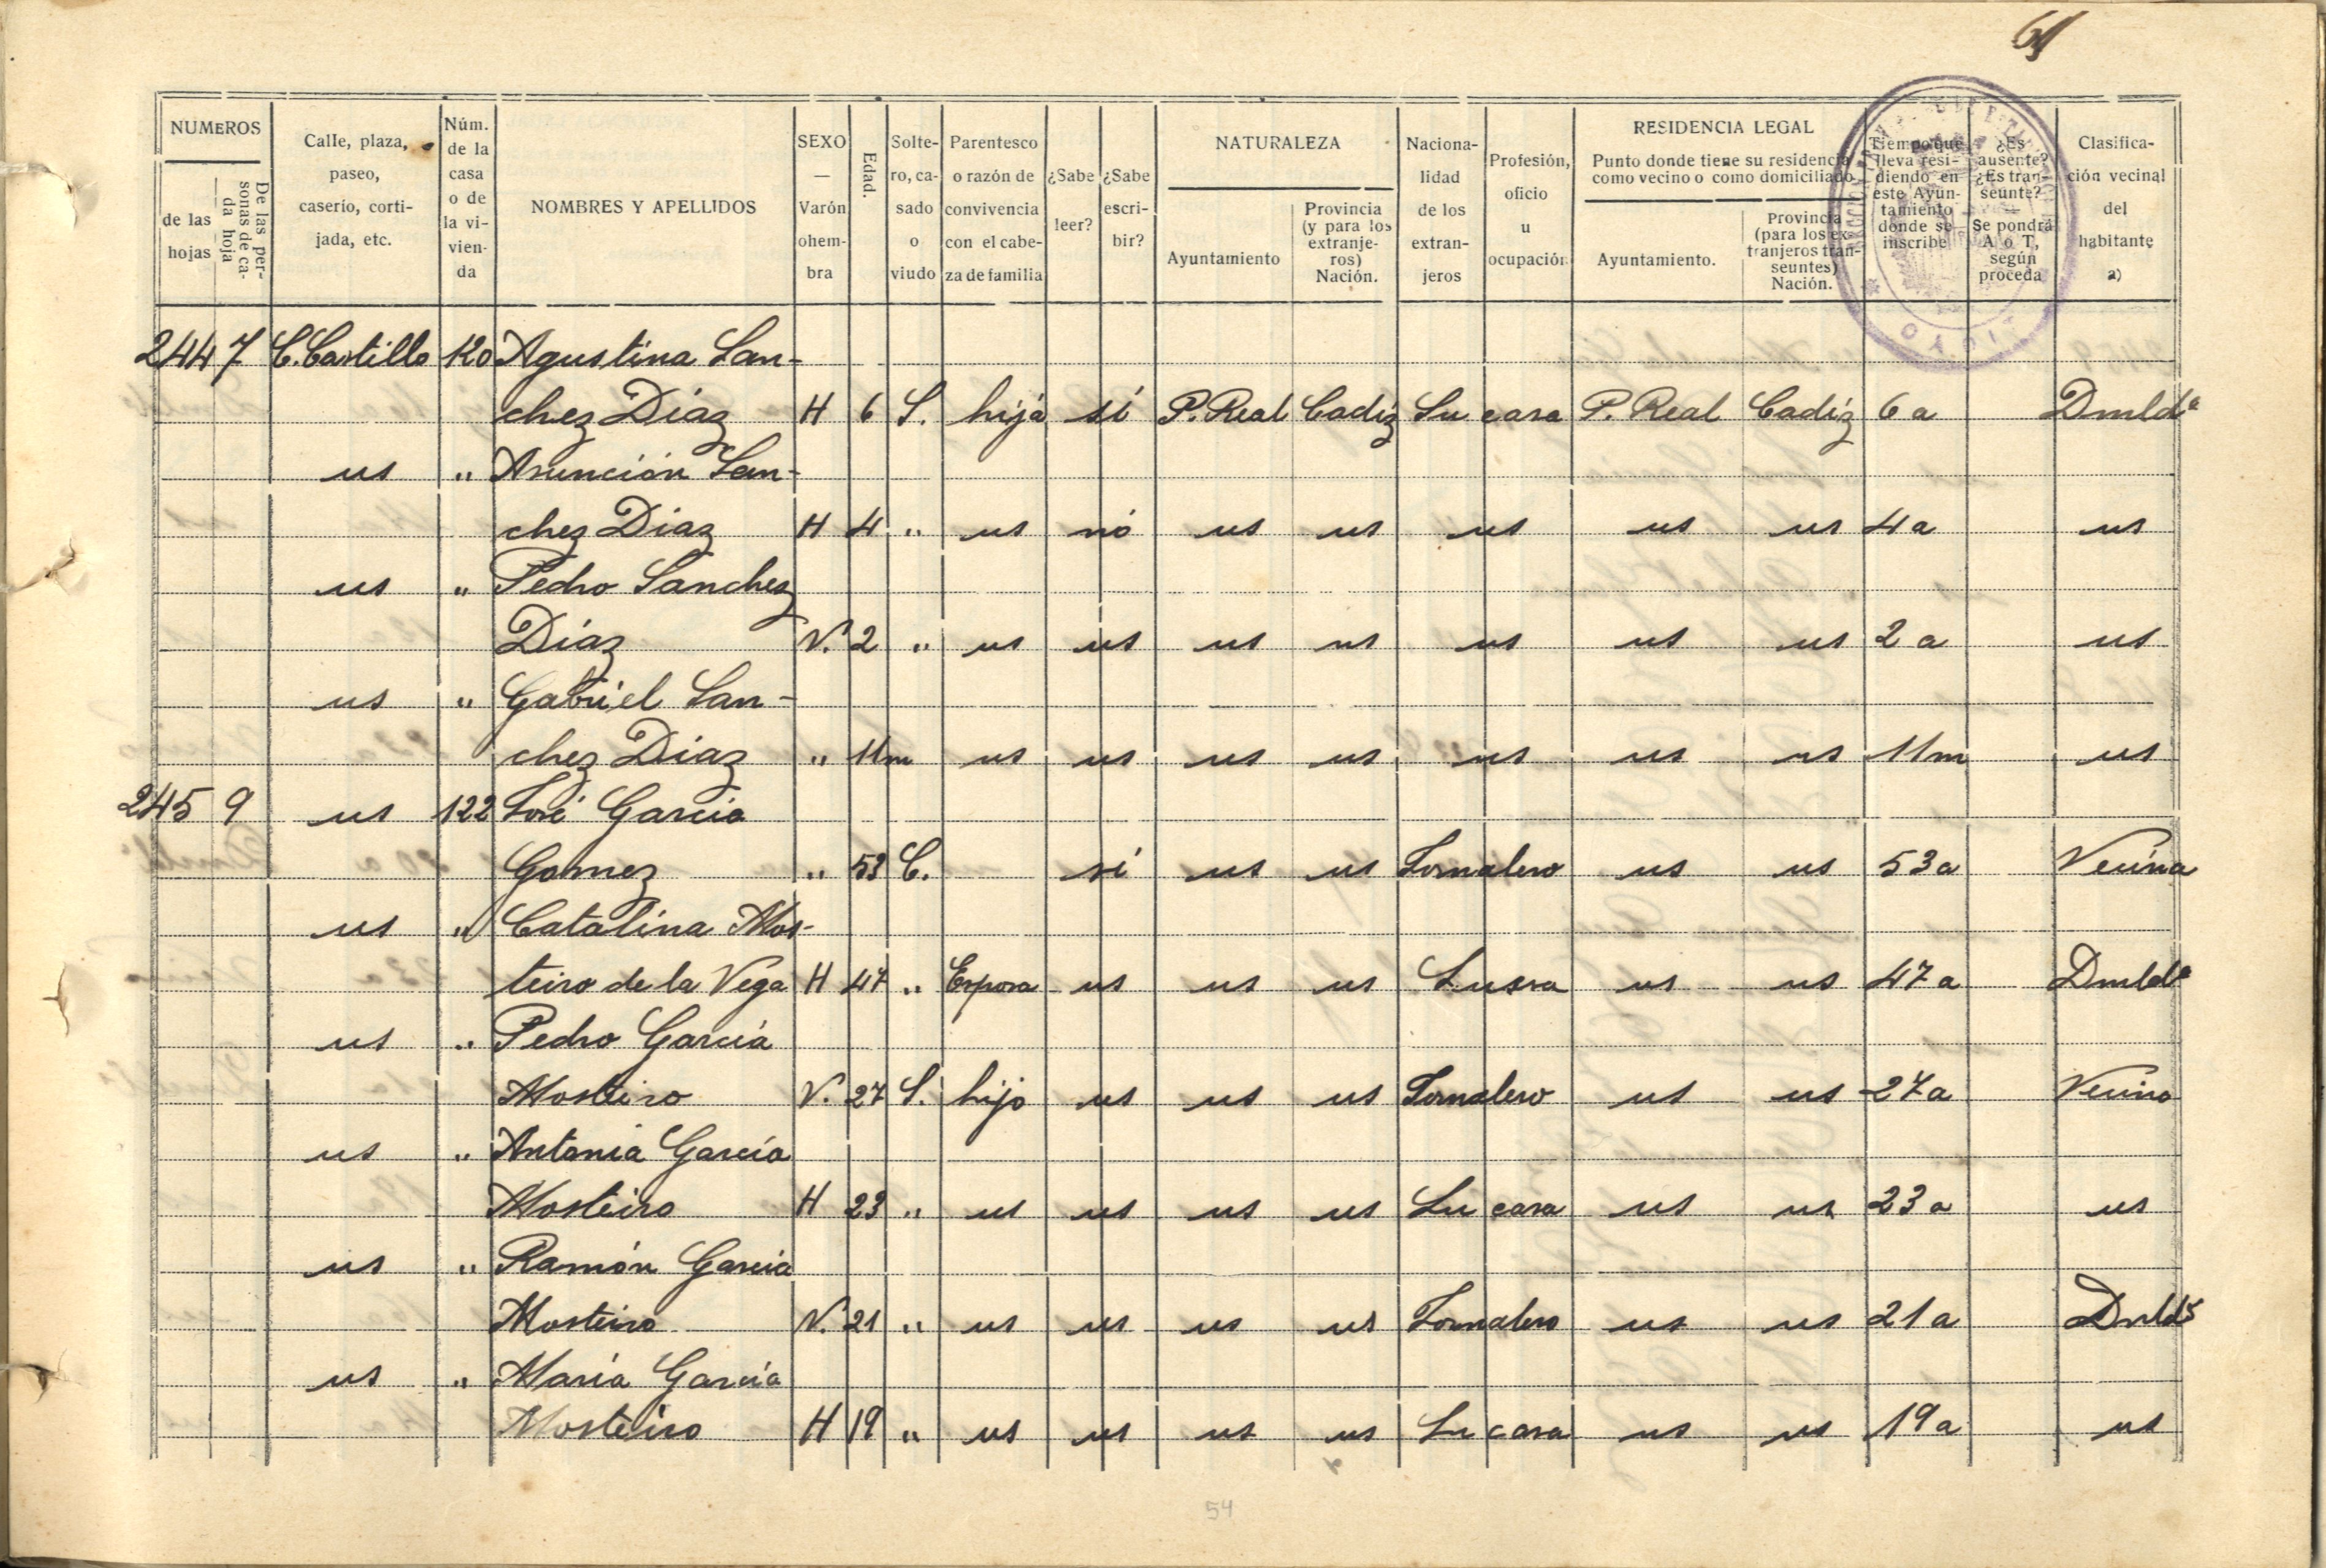 61
NUMEROS
de las hojas
De las personas de cada hoja
Calle, plaza, paseo, caserío, cortijada, etc.
Núm. de la casa o de la vivienda
NOMBRES Y APELLIDOS
SEXO — Varón ohembra
Edad.
Soltero, casado o viudo
Parentesco o razón de convivencia con el cabeza de familia
¿Sabe leer?
¿Sabe escribir?
NATURALEZA
Ayuntamiento
Provincia (y para los extranjeros) Nación.
Nacionalidad de los extranjeros
Profesión, oficio u ocupación
RESIDENCIA LEGAL
Punto donde tiene su residencia como vecino o como domiciliado
Ayuntamiento.
Provincia (para los extranjeros transeuntes) Nación.
Tiempo que lleva residiendo en este Ayuntamiento donde se inscribe
¿Es ausente? ¿Es transeunte? — Se pondrá A o T, según proceda
Clasificación vecinal del habitante a)
244 7 C. Castillo 120 Agustina San-
chez Diaz H 6 S. hija si P. Real Cadiz Su casa P. Real Cadiz 6 a Dmldª
us " Asunción San-
chez Diaz H 4 " us nó us us us us us 4 a us
us " Pedro Sanchez
Díaz V. 2 " us us us us us us us 2 a us
us " Gabriel San-
chez Diaz " 11m us us us us us us us 11m us
245 9 us 122 José García
Gomez " 53 C. si us us Jornalero us us 53 a Vecina
us " Catalina Mos-
teiro de la Vega H 47 " Esposa us us us Su casa us us 47 a Dmldª
us " Pedro García
Mosteiro V. 27 S. hijo us us us Jornalero us us 27 a Vecino
us " Antonia García
Mosteiro H 23 " us us us us Su casa us us 23 a us
us " Ramón García
Mosteiro V. 21 " us us us us Jornalero us us 21 a Dmldº
us " María García
Mosteiro H 19 " us us us us Su casa us us 19 a us
54